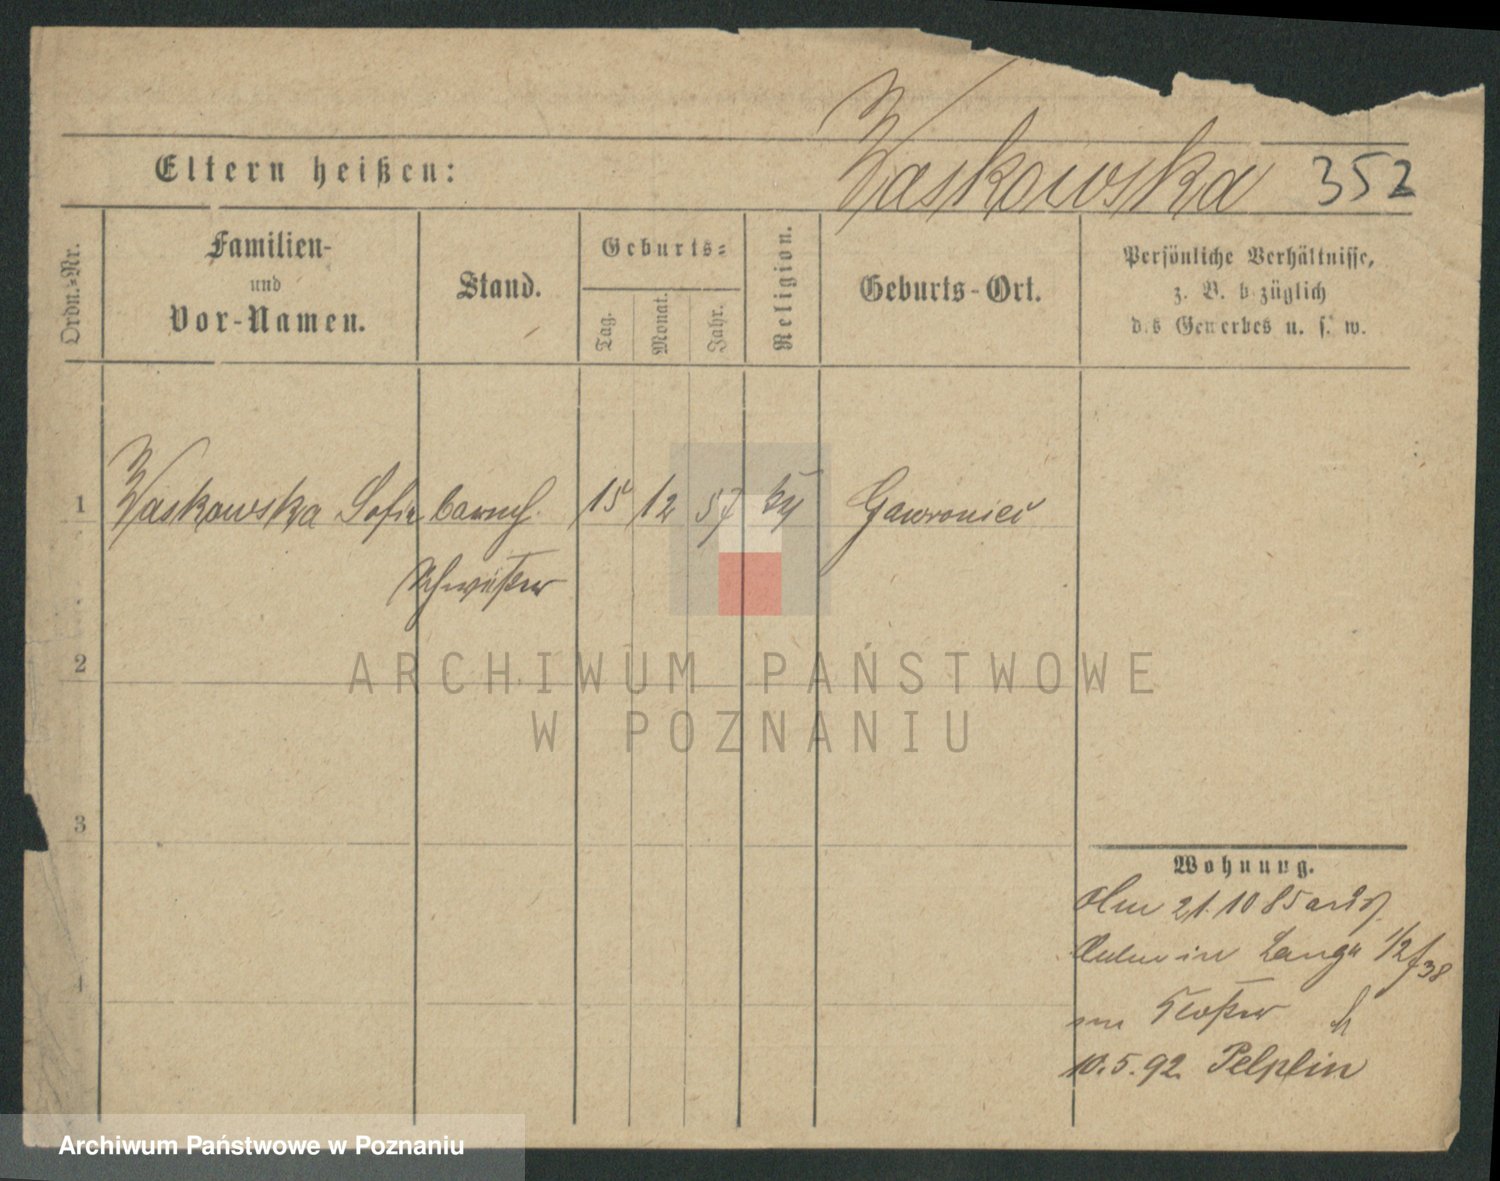 Waskowska 352
Eltern heißen:
Ordn.-Nr.
Familien-
und
Vor-Namen.
Stand.
Geburts-
Tag.
Monat.
Jahr.
Religion.
Geburts-Ort.
Persönliche Verhältnisse,
z. B. bezüglich
des Gewerbes u. s. w.
1 Waskowska Sofie barmh. 15 12 57 Gawroniec
Schwester
2
3
4
Wohnung.
21.10 85
in
Kloster
10.5.92 Pelplin
ARCHIWUM PAŃSTWOWE
W POZNANIU
Archiwum Państwowe w Poznaniu